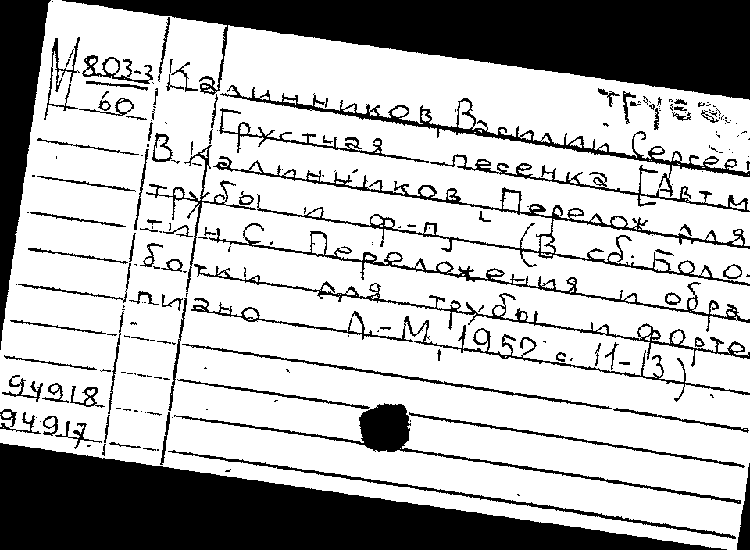 М 803-3
60
труба
Калинников, Василий Сергеев
Грустная песенка. [Авт. м
В. Калинников. Перелож. для
трубы и ф.-п. (В сб: Боло
тин, С. Переложения и обра
ботки для трубы и форте
пиано Л.-М, 1952 с. 11-13)
94918
94917